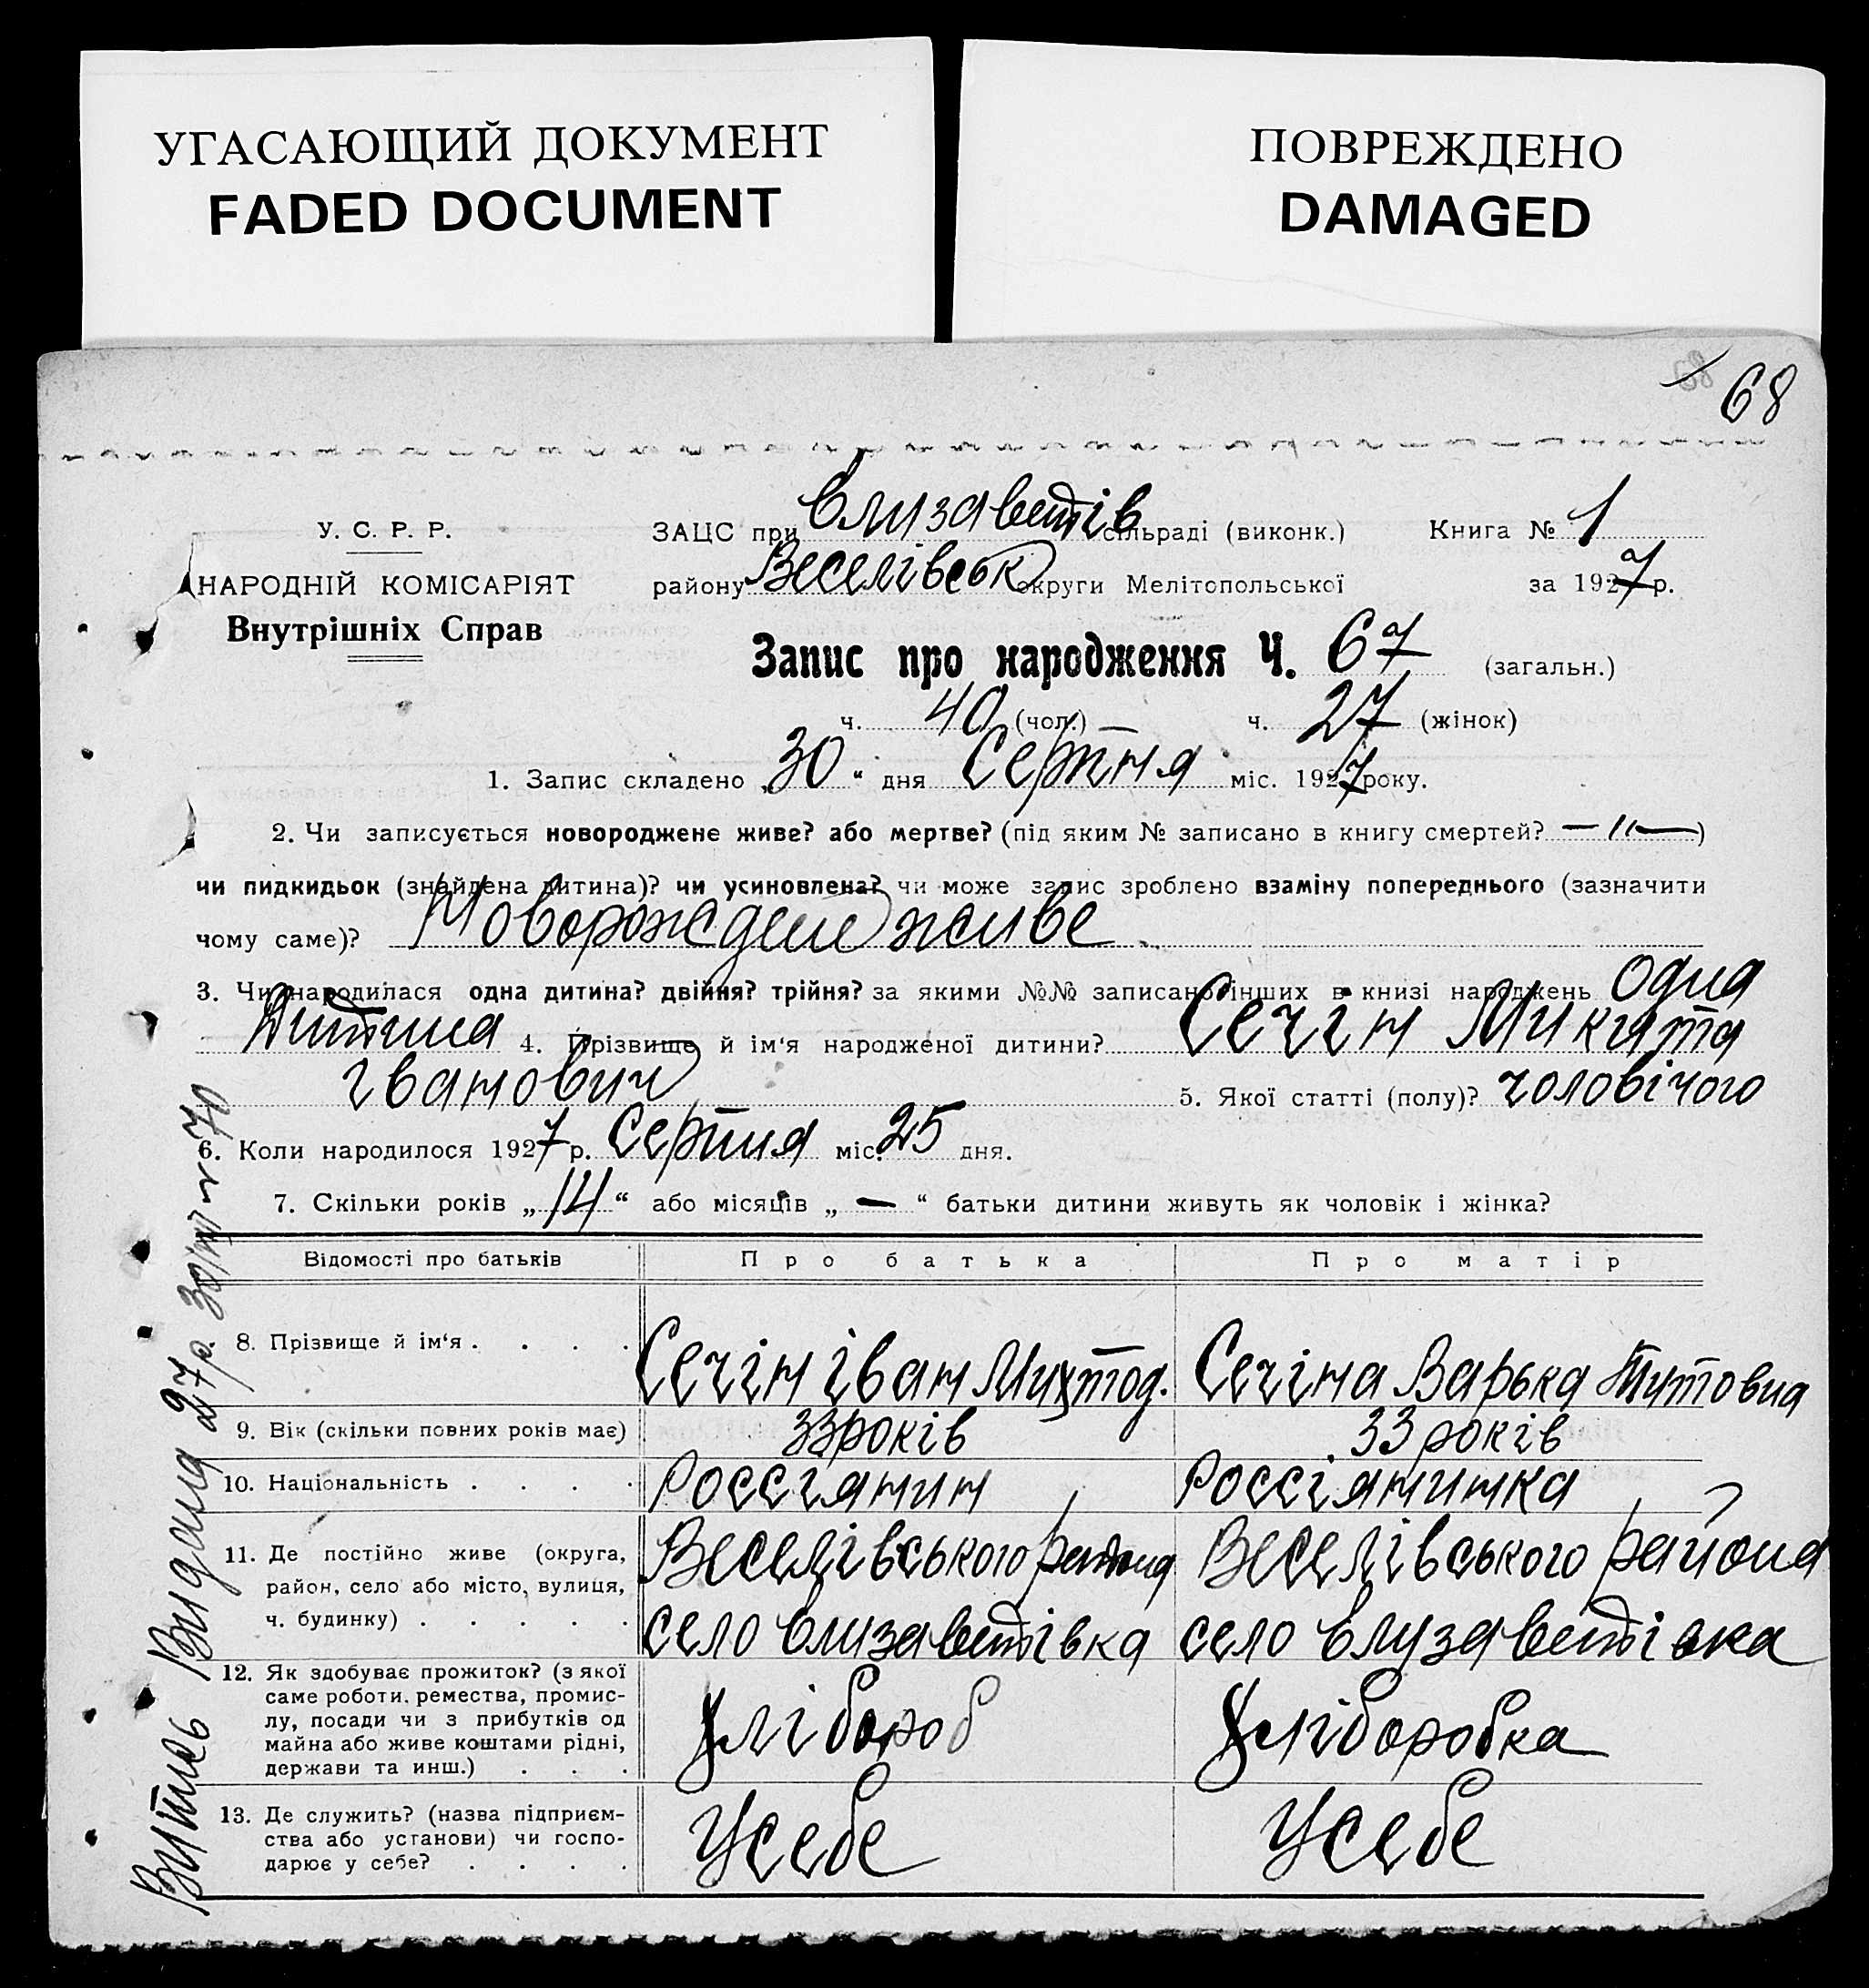 УГАСАЮЩИЙ ДОКУМЕНТ
FADED DOCUMENT
ПОВРЕЖДЕНО
DAMAGED
68
У. С. Р. Р.
НАРОДНІЙ КОМІСАРІЯТ
Внутрішніх Справ
ЗАЦС при Єлизаветів сільраді (виконк.) Книга № 1
району Веселівськ округи Мелітопольської за 1927 р.
Запис про народження Ч. 67 (загальн.)
ч. 40 (чол.) ч. 27 (жінок)
1. Запис складено „30“ дня Серпня міс. 1927 року.
2. Чи записується новороджене живе? або мертве? (під яким № записано в книгу смертей? — „ —)
чи пидкидьок (знайдена дитина)? чи усиновлена? чи може запис зроблено взаміну попереднього (зазначити
чому саме)? Новорождене живе
3. Чи народилася одна дитина? двійня? трійня? за якими №№ записано інших в книзі народжень одна
Дитина 4. Прізвище й ім'я народженої дитини? Сечін Микита
іванович 5. Якої статті (полу)? чоловічого
6. Коли народилося 1927 р. Серпня міс. 25 дня.
7. Скільки років „14“ або місяців „—“ батьки дитини живуть як чоловік і жінка?
Відомості про батьків Про батька Про матір
8. Прізвище й ім'я . . . . Сечін іван Сечіна Варька Титовна
9. Вік (скільки повних років має) 33 років 33 років
10. Національність . . . . Россіянин Россіянинка
11. Де постійно живе (округа, Веселівського района Веселівського района
район, село або місто, вулиця,
ч. будинку) . . . . . село Єлизаветівка село Єлузаветівка
12. Як здобуває прожиток? (з якої
саме роботи, ремества, промис-
лу, посади чи з прибутків од Хлібороб Хліборобка
майна або живе коштами рідні,
держави та инш.) . . .
13. Де служить? (назва підприєм-
ства або установи) чи госпо- Усебе Усебе
дарює у себе? . . . .
Витяг Видана 27 р. 30/ № 70